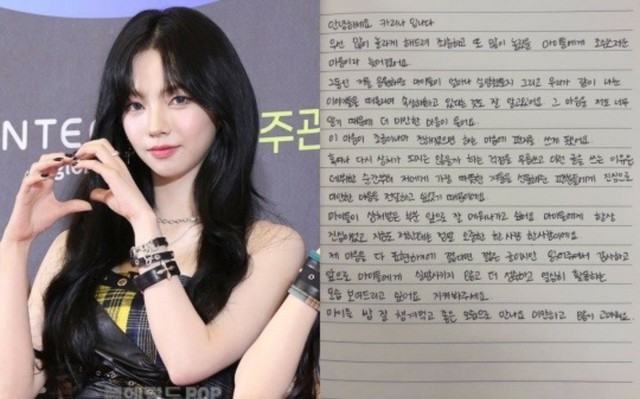 NTE
주관
헤럴드 POP
안녕하세요 카리나 입니다
우선 많이 놀라게 해드려 죄송하고 또 많이 놀랐을 마이들에게 조심스러운
마음이라 늦어졌어요.
그동안 저를 응원해준 마이들이 얼마나 실망했을지 그리고 우리가 같이 나눈
이야기들을 떠올리며 속상해하고 있다는 것도 잘 알고있어요. 그 마음을 저도 너무
알기 때문에 더 미안한 마음이 들어요.
이 마음이 조금이나마 전해졌으면 하는 마음에 편지를 쓰게 됐어요.
혹여나 다시 상처가 되지는 않을까 하는 걱정을 무릅쓰고 이런 글을 쓰는 이유는
데뷔한 순간부터 저에게 가장 따뜻한 겨울을 선물해준 팬분들에게 진심으로
미안한 마음을 전달하고 싶었기 때문이에요.
마이들이 상처받은 부분 앞으로 잘 메워나가고 싶어요 마이들에게 항상
진심이었고 지금도 저한테는 정말 소중한 한 사람 한사람이에요.
제 마음을 다 표현하기에 짧다면 짧은 글이지만 읽어주셔서 감사하고
앞으로 마이들에게 실망시키지 않고 더 성숙하고 열심히 활동하는
모습 보여드리고 싶어요. 지켜봐주세요.
마이들 밥 잘 챙겨먹고 좋은 모습으로 만나요 미안하고 많이 고마워요.